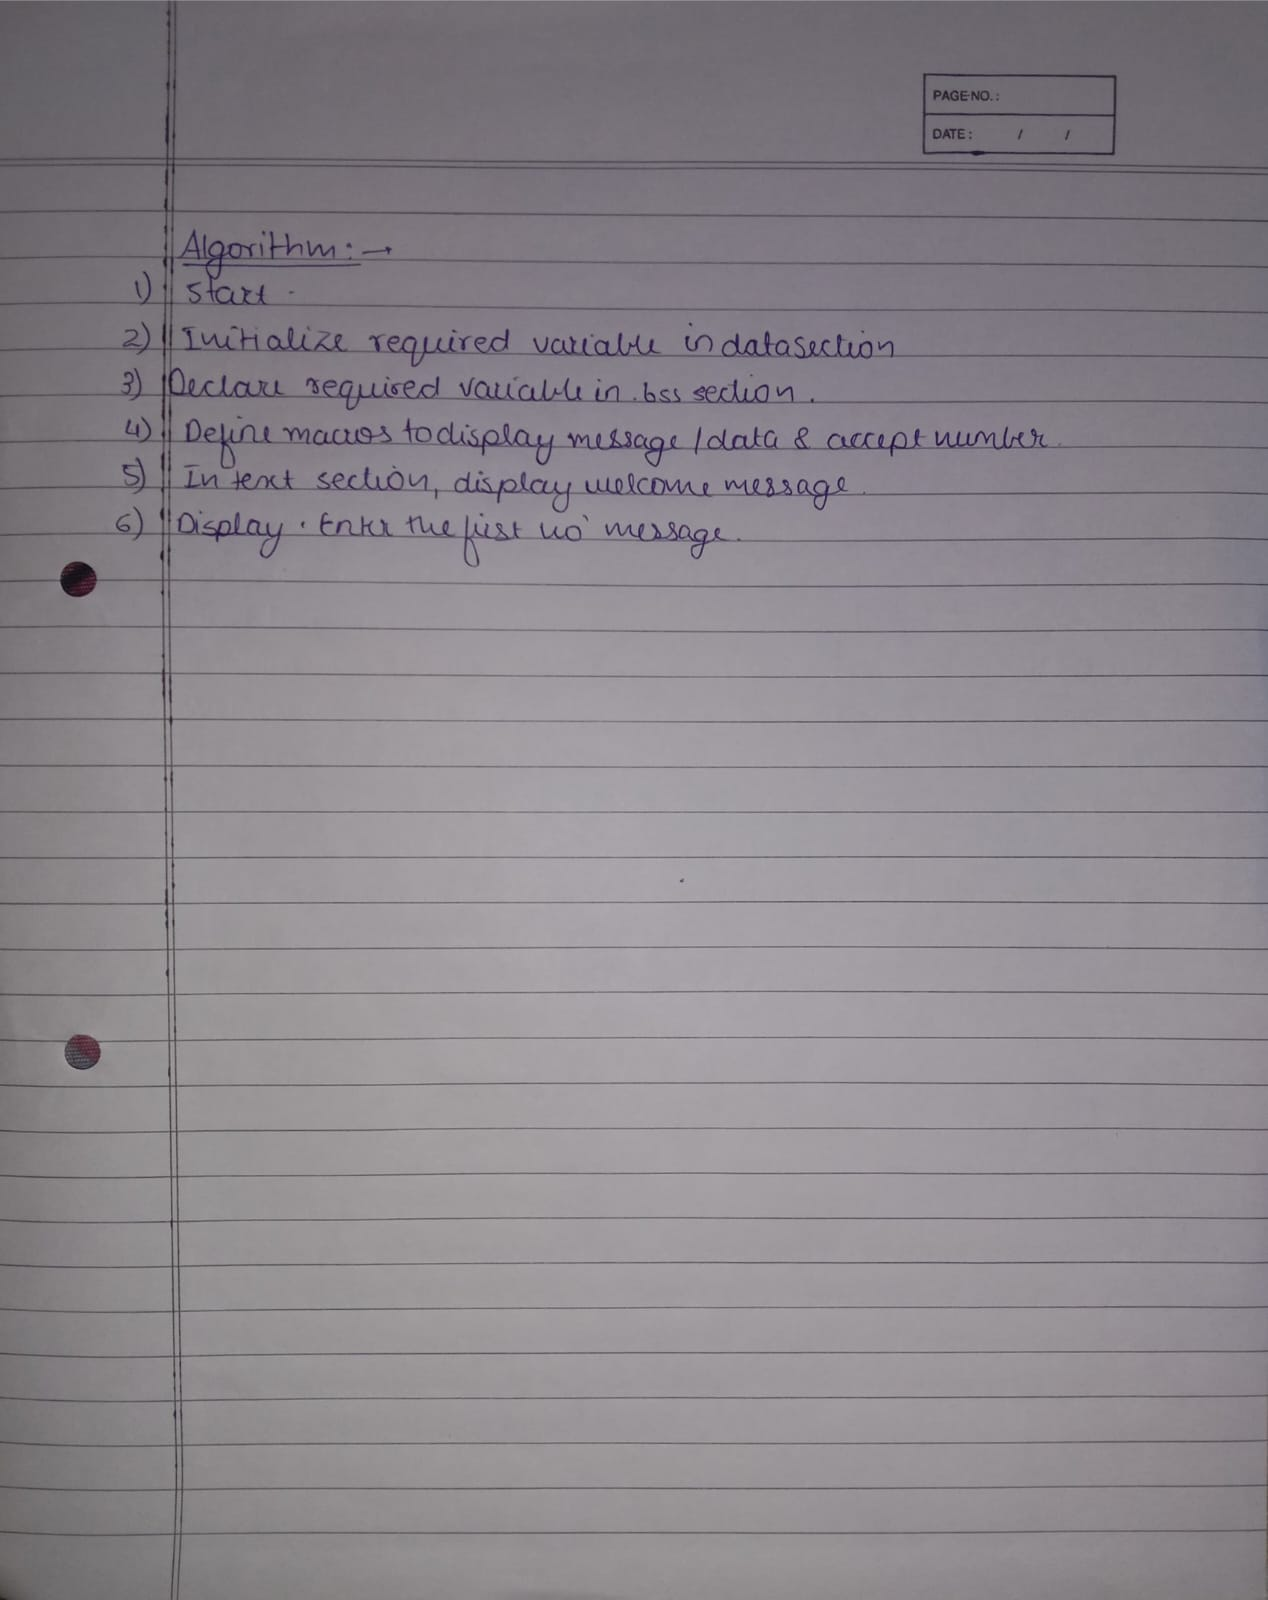 PAGE NO.:
DATE: / /
Algorithm:→
1) Start.
2) Initialize required variable in data section
3) Declare required variable in .bss section.
4) Define macros to display message / data & accept number.
5) In text section, display welcome message.
6) Display 'Enter the first no' message.